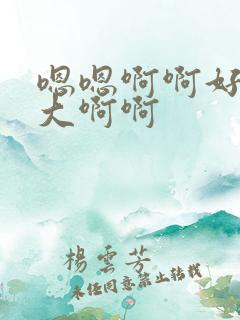 嗯嗯啊啊好
大啊啊
楊雲芳
未经同意禁止转载